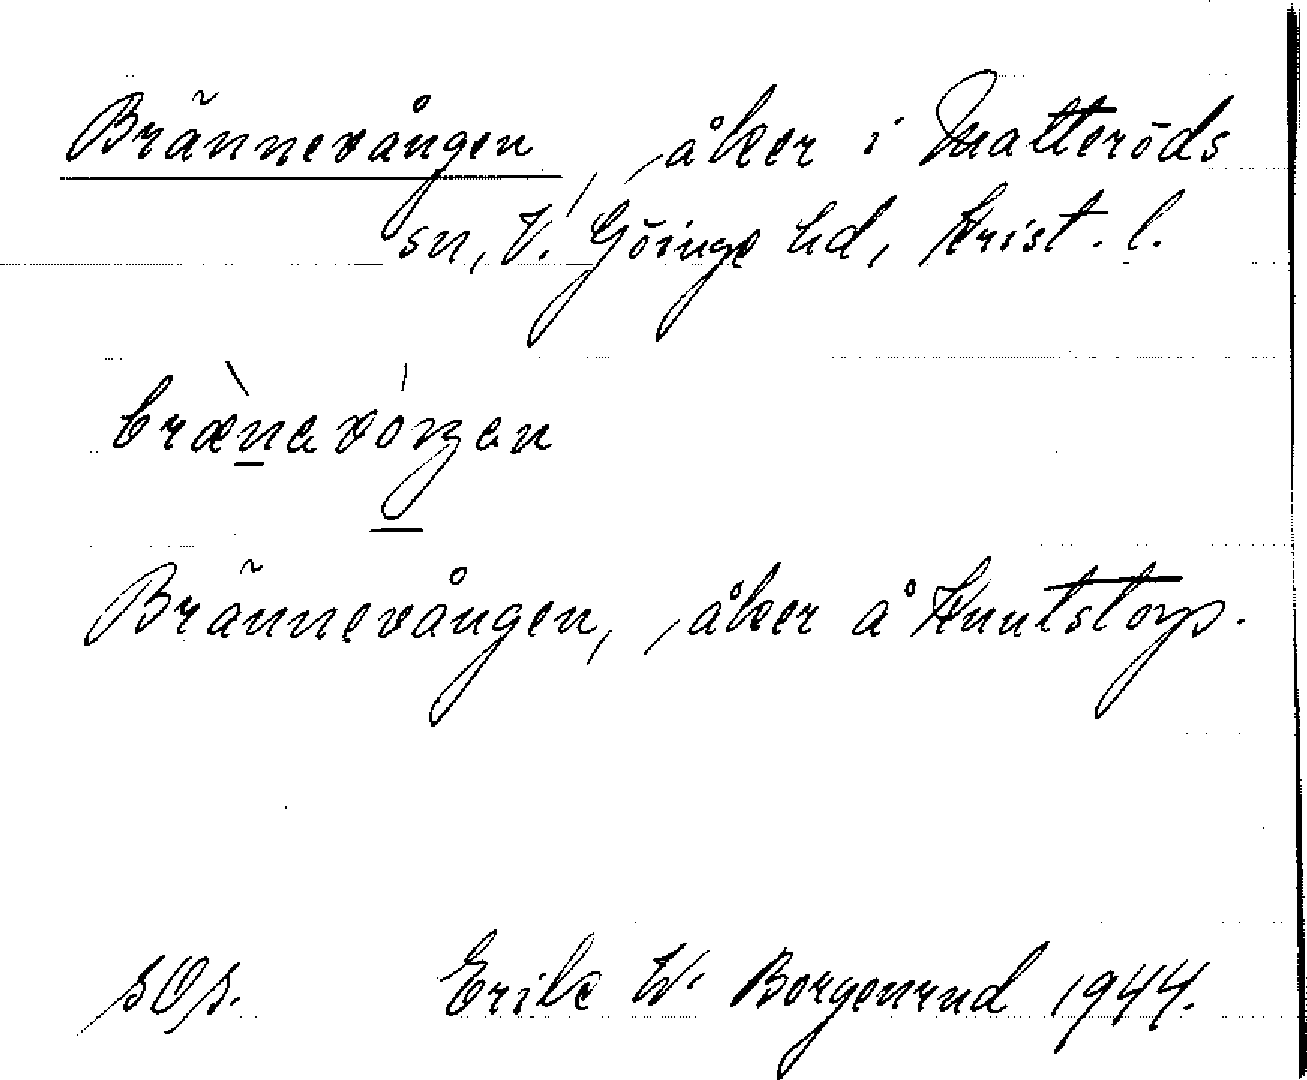 Brännevången, åker i Matteröds
sn, V. Göinge hd, Krist. l.
bræ̀navóŋan
Brännevången, åker å Knutstorp.
sOs. Erik W. Borgenrud 1944.